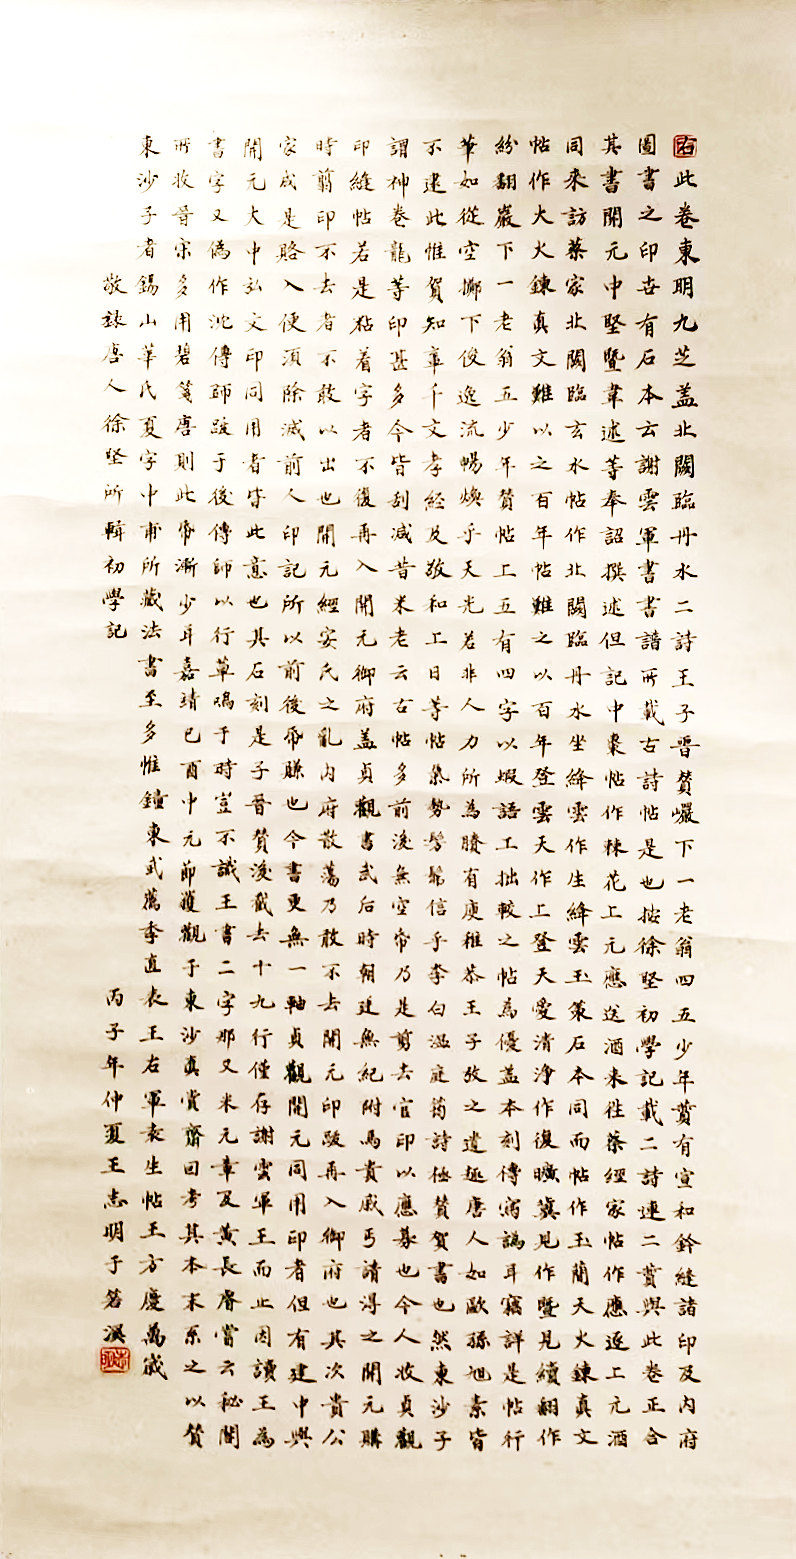 右此卷東明九芝蓋北闕臨丹水二詩王子晉贊巖下一老翁四五少年贊有宣和鈐縫諸印及內府
圖書之印世有石本云謝雲軍書書譜所載古詩帖是也按徐堅初學記載二詩連二贊與此卷正合
其書開元中堅暨韋述等奉詔撰述但記中棗帖作棘花上元應送酒來往蔡經家帖作應逐上元酒
同來訪蔡家北闕臨玄水帖作北闕臨丹水坐絳雲作生絳雲玉策石本同而帖作玉簡天火鍊真文
帖作大火鍊真文難以之百年帖難之以百年登雲天作上登天愛清淨作復曠冀見作暨見續翻作
紛翻巖下一老翁五少年贊帖上五有四字以蝦語工拙較之帖為優蓋本刻傳寫譌耳竊詳是帖行
筆如從空擲下俊逸流暢煥乎天光若非人力所為賸有庾稚恭王子敬之遺趣唐人如歐孫旭素皆
不逮此惟賀知章千文孝經及敬和上日等帖氣勢髣髴信乎李白溫庭筠詩極贊賀書也然東沙子
謂神卷龍等印甚多今皆刮滅昔米老云古帖多前後無空帋乃是剪去官印以應募也今人收貞觀
印縫帖若是黏着字者不復再入開元御府蓋貞觀書武后時朝廷無紀附馬貴戚丐請得之開元購
時剪印不去者不敢以出也開元經安氏之亂內府散蕩乃敢不去開元印跋再入御府也其次貴公
家或是賂入便須除滅前人印記所以前後帋賺也今書更無一軸貞觀開元同用印者但有建中與
開元大中弘文印同用者皆此意也其石刻是子晉贊後截去十九行僅存謝雲軍王而止因讀王為
書字又偽作沈傳師跋于後傳師以行草鳴于時豈不識王書二字那又米元章及黃長睿嘗云秘閣
所收晉宋多用碧箋唐則此帋漸少耳嘉靖己酉中元節獲觀于東沙真賞齋回考其本末系之以贊
東沙子者錫山華氏夏字中甫所藏法書至多惟鐘東武薦季直表王右軍袁生帖王方慶萬歲
敬錄唐人徐堅所輯初學記 丙子年仲夏王志明于苕溪